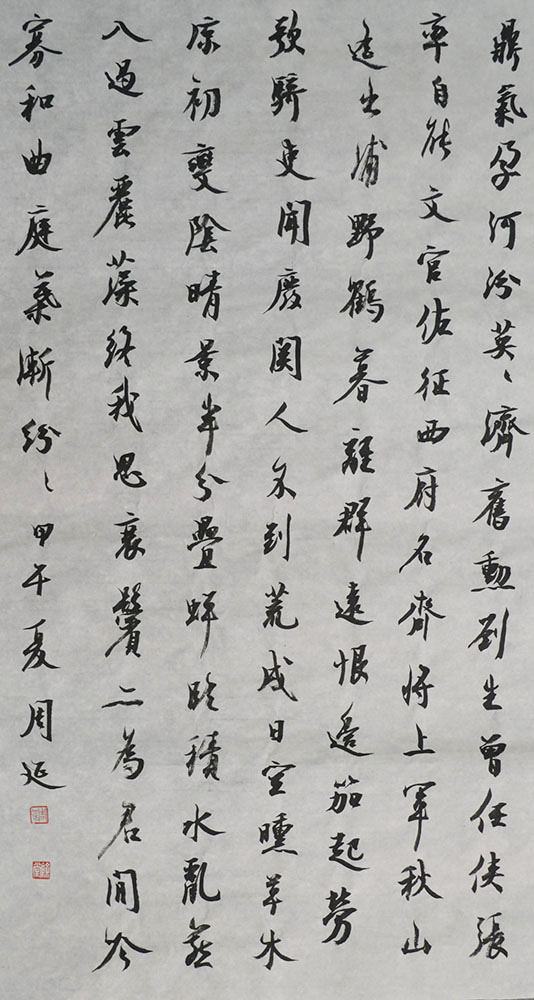 鼎氣孕河汾英〻濟舊勳劉生曾任俠張
率自能文官佐征西府名齊將上軍秋山
遙出浦野鶴暮離群遠恨邊笳起勞
歌騎吏聞廢關人不到荒戍日空曛草木
涼初變陰晴景半分疊蟬臨積水亂燕
入過雲麗藻終我思衰鬢亦為君閒吟
寡和曲庭葉漸紛〻甲午夏周延